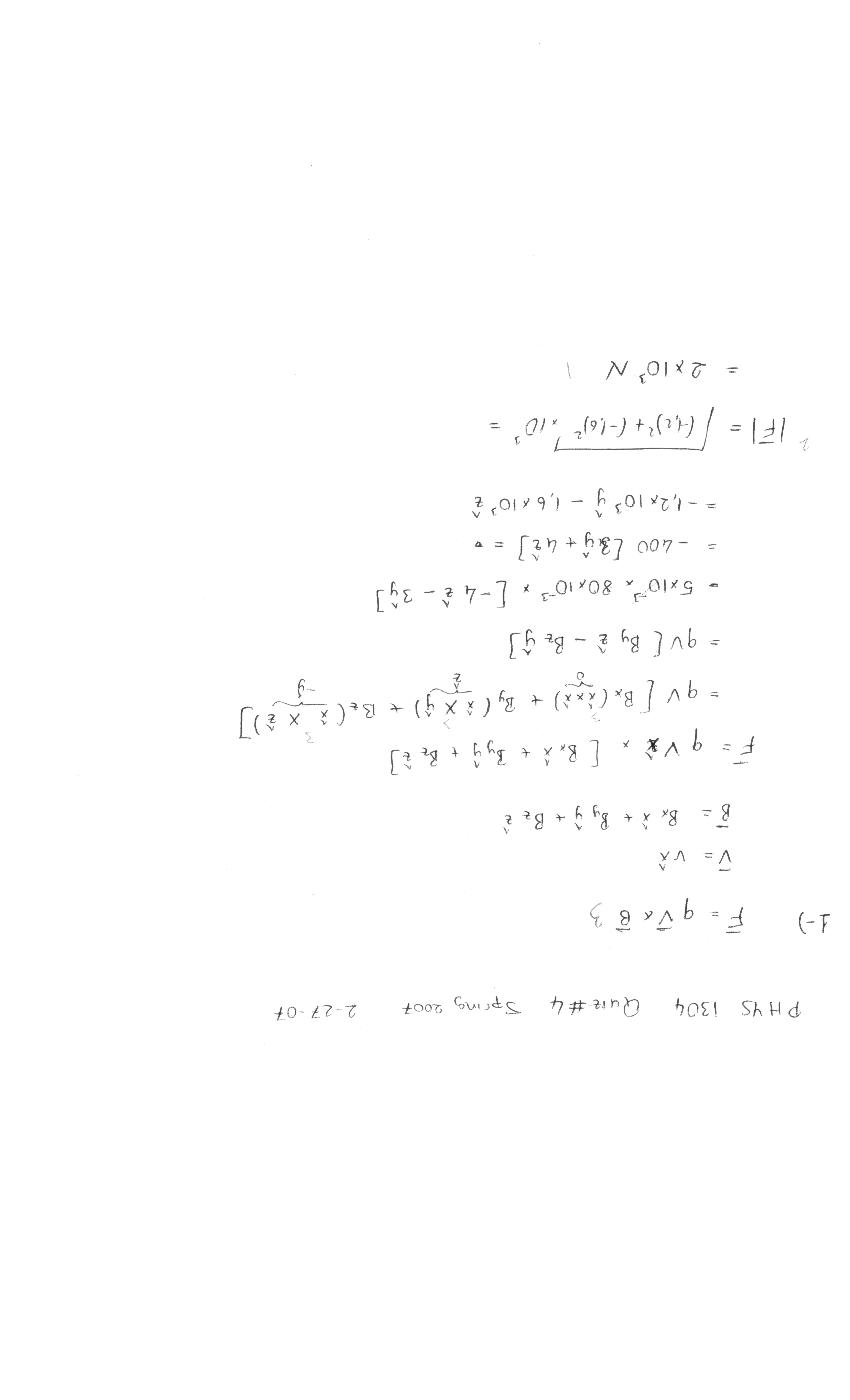 PHYS 1304 Quiz #4 Spring 2007 2-27-07
1-) F̄ = q V̄ x B̄ 3
V̄ = v x̂
B̄ = Bx x̂ + By ŷ + Bz ẑ
F̄ = q v x̂ × [Bx x̂ + By ŷ + Bz ẑ]
= q v [Bx (x̂ × x̂) + By (x̂ × ŷ) + Bz (x̂ × ẑ)]
0 ẑ -ŷ
= q v [By ẑ - Bz ŷ]
= 5×10⁻³ × 80×10³ × [-4 ẑ - 3ŷ]
= -400 [3ŷ + 4ẑ] =
= -1,2×10³ ŷ - 1,6×10³ ẑ
2 |F̄| = √(-1,2)² + (-1,6)² × 10³ =
= 2×10³ N 1